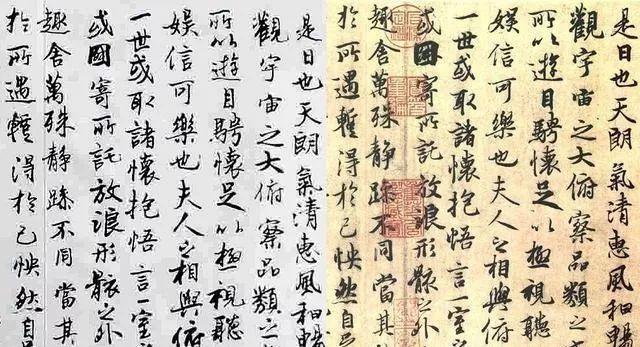 是日也天朗氣清惠風和暢
觀宇宙之大俯察品類之
所以遊目騁懷足以極視聽
娛信可樂也夫人之相與俯
一世或取諸懷抱悟言一室
或因寄所託放浪形骸之外
趣舍萬殊静躁不同當其
於所遇暫得於己怏然自
是日也天朗氣清惠風和暢
觀宇宙之大俯察品類之
所以遊目騁懷足以極視聽
娛信可樂也夫人之相與俯
一世或取諸懷抱悟言一室
或因寄所託放浪形骸之外
趣舍萬殊静躁不同當其
於所遇暫得於己怏然自